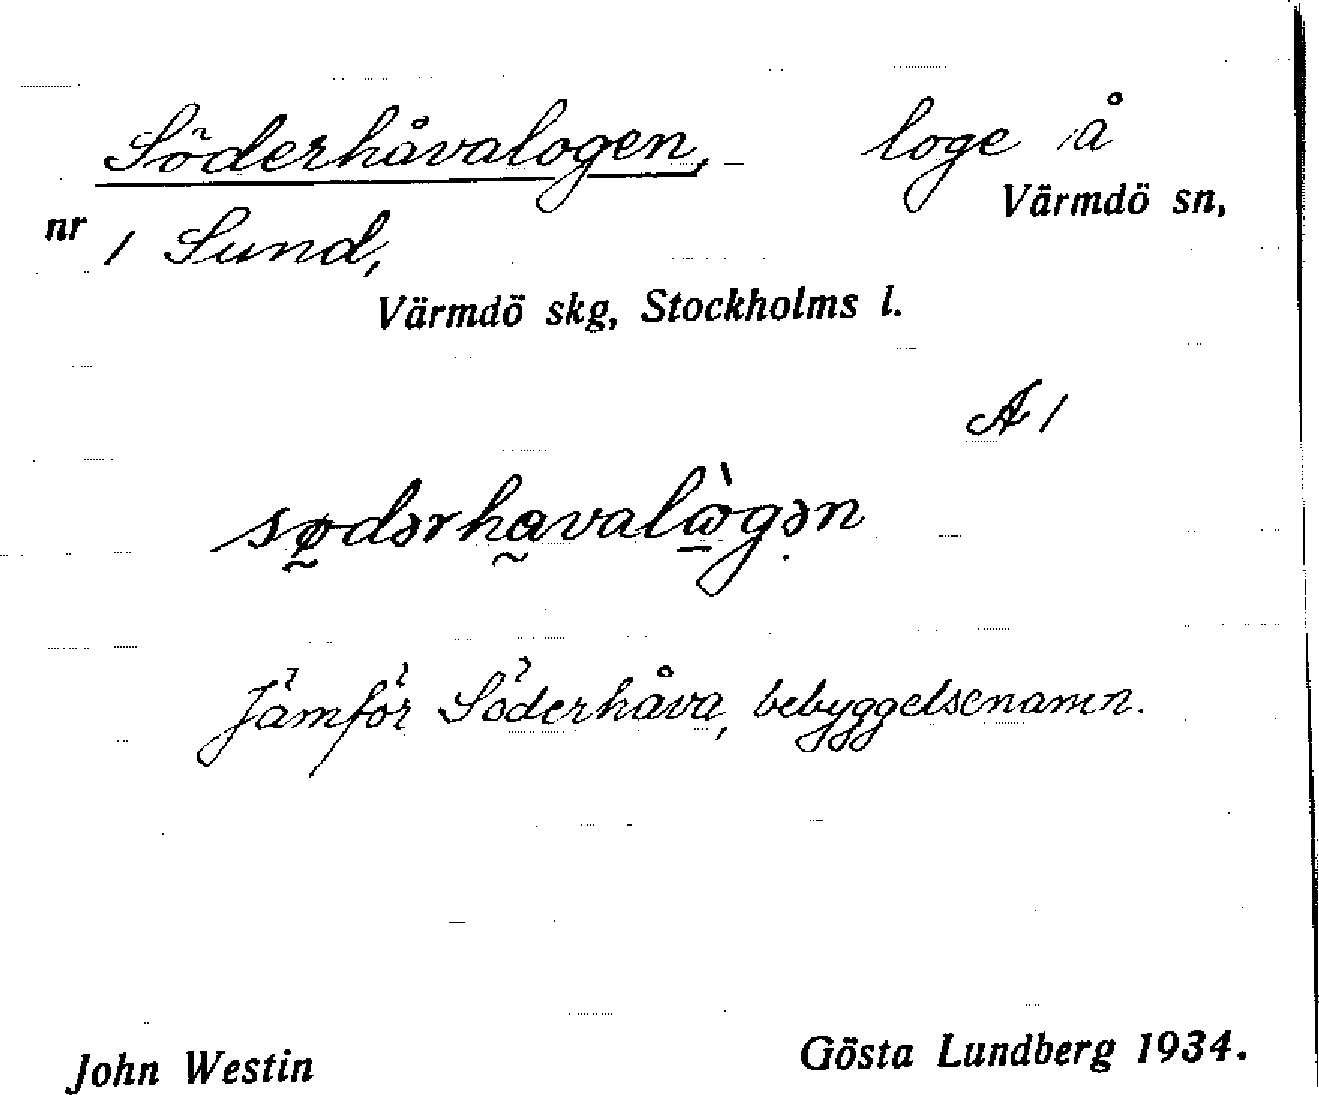 Söderhåvalogen, loge å
Värmdö sn,
nr 1 Sund,
Värmdö skg, Stockholms l.
A 1
sødərhavalὼgən
Jämför Söderhåva, bebyggelsenamn.
John Westin Gösta Lundberg 1934.